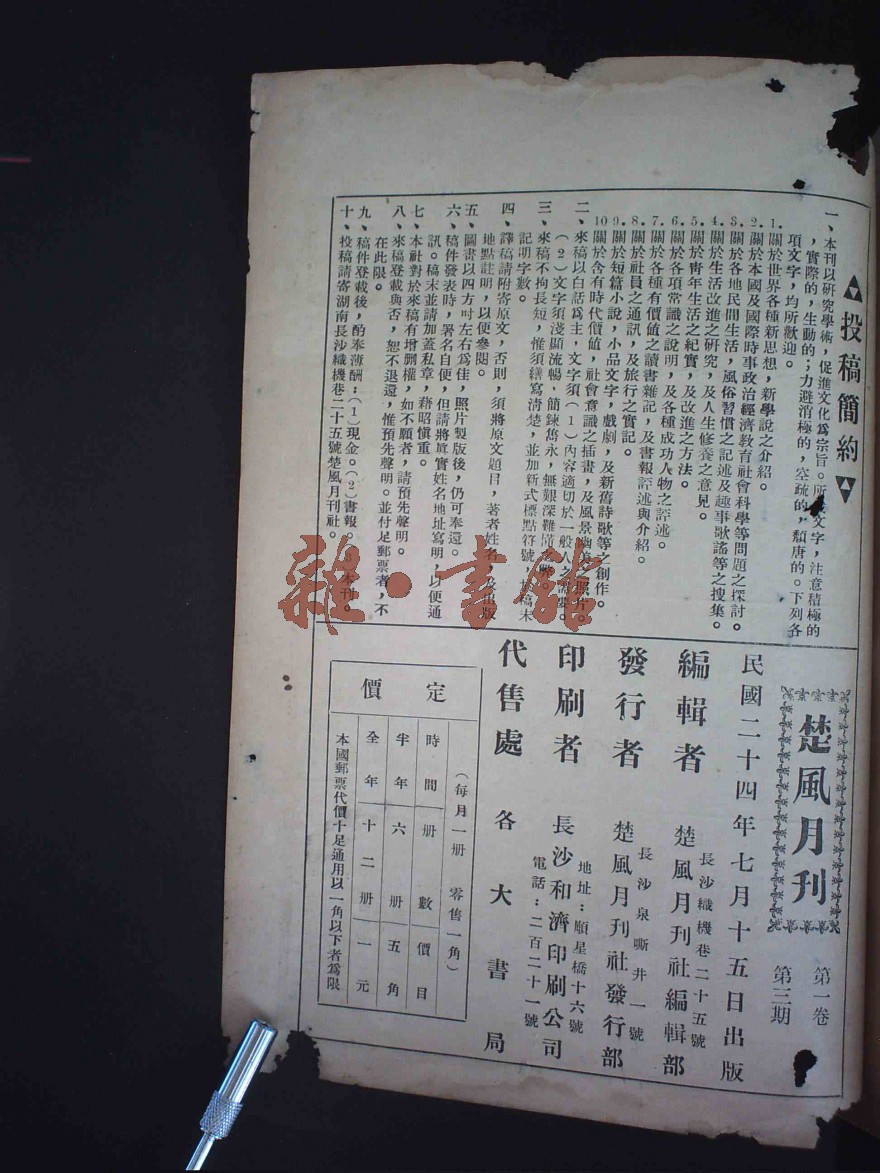 ▲▼投稿簡約▲▼
一、本刊以研究學術，促進文化爲宗旨。所文字，注意積極的
，實際的，生動的；力避消極的，空疏的，頹唐的。下列各
項文字，均所歡迎。
1.關於世界各種新思想，新學說之介紹。
2.關於本國及國際時事政治經濟教育社會科學等問題之探討。
3.關於各地民間生活，風俗習慣之記述及趣事歌謠等之搜集。
4.關於生活改進之研究，及人生修養之意見。
5.關於青年生活之紀實，及改進之方法。
6.關於各項常識之說明，及各種成功人物之評述。
7.關於各種有價值之讀書雜記，及書報評述與介紹。
8.關於社員之通訊，及旅行之實記。
9.關於短篇小說，小品文字，戲劇，及新舊詩歌等之創作。
10.關於含有時代價値，社會意識之插畫，及風景幽美之照片。
二、來稿以白話爲主，文字須（1）內容適切於一般人之需要。
（2）文字須淺顯流暢，簡鍊雋永，無艱深難懂之
三、來稿不拘長短，惟須繕寫清楚，並加新式標點符號，於稿末
記明字數。
四、譯稿請附寄原文，否則，須將原文題目，著者姓名及出版
地點註明，以便參閱。
五、圖書以四方吋左右爲佳，照片製版後，仍可奉還。
六、稿件發表時，署名自便，但請將眞實姓名地址寫明，以便通
訊。稿末並請加蓋私章，藉昭愼重。
七、本社對於來稿有增删權，如不願者，請預先聲明。
八、來稿登載與否，恕不退還，惟預先聲明。並付足郵票者，不
在此限。
九、稿件登載後，酌奉薄酬：（1）現金。（2）書報。本刊。
十、投稿請寄湖南長沙織機巷二十五號楚風月刊社。
楚風月刊
第一卷
第三期
民國二十四年七月十五日出版
編輯者 楚風月刊社編輯部
長沙織機巷二十五號
發行者 楚風月刊社發行部
長沙泉嘶井一號
印刷者 長沙和濟印刷公司
地址：順星橋十六號
電話：二百二十一號
代售處 各大書局
定價
（每月一册 零售一角）
時間 册數 價目
半年 六册 五角
全年 十二册 一元
本國郵票代價十足通用以一角以下者爲限
雜·書館